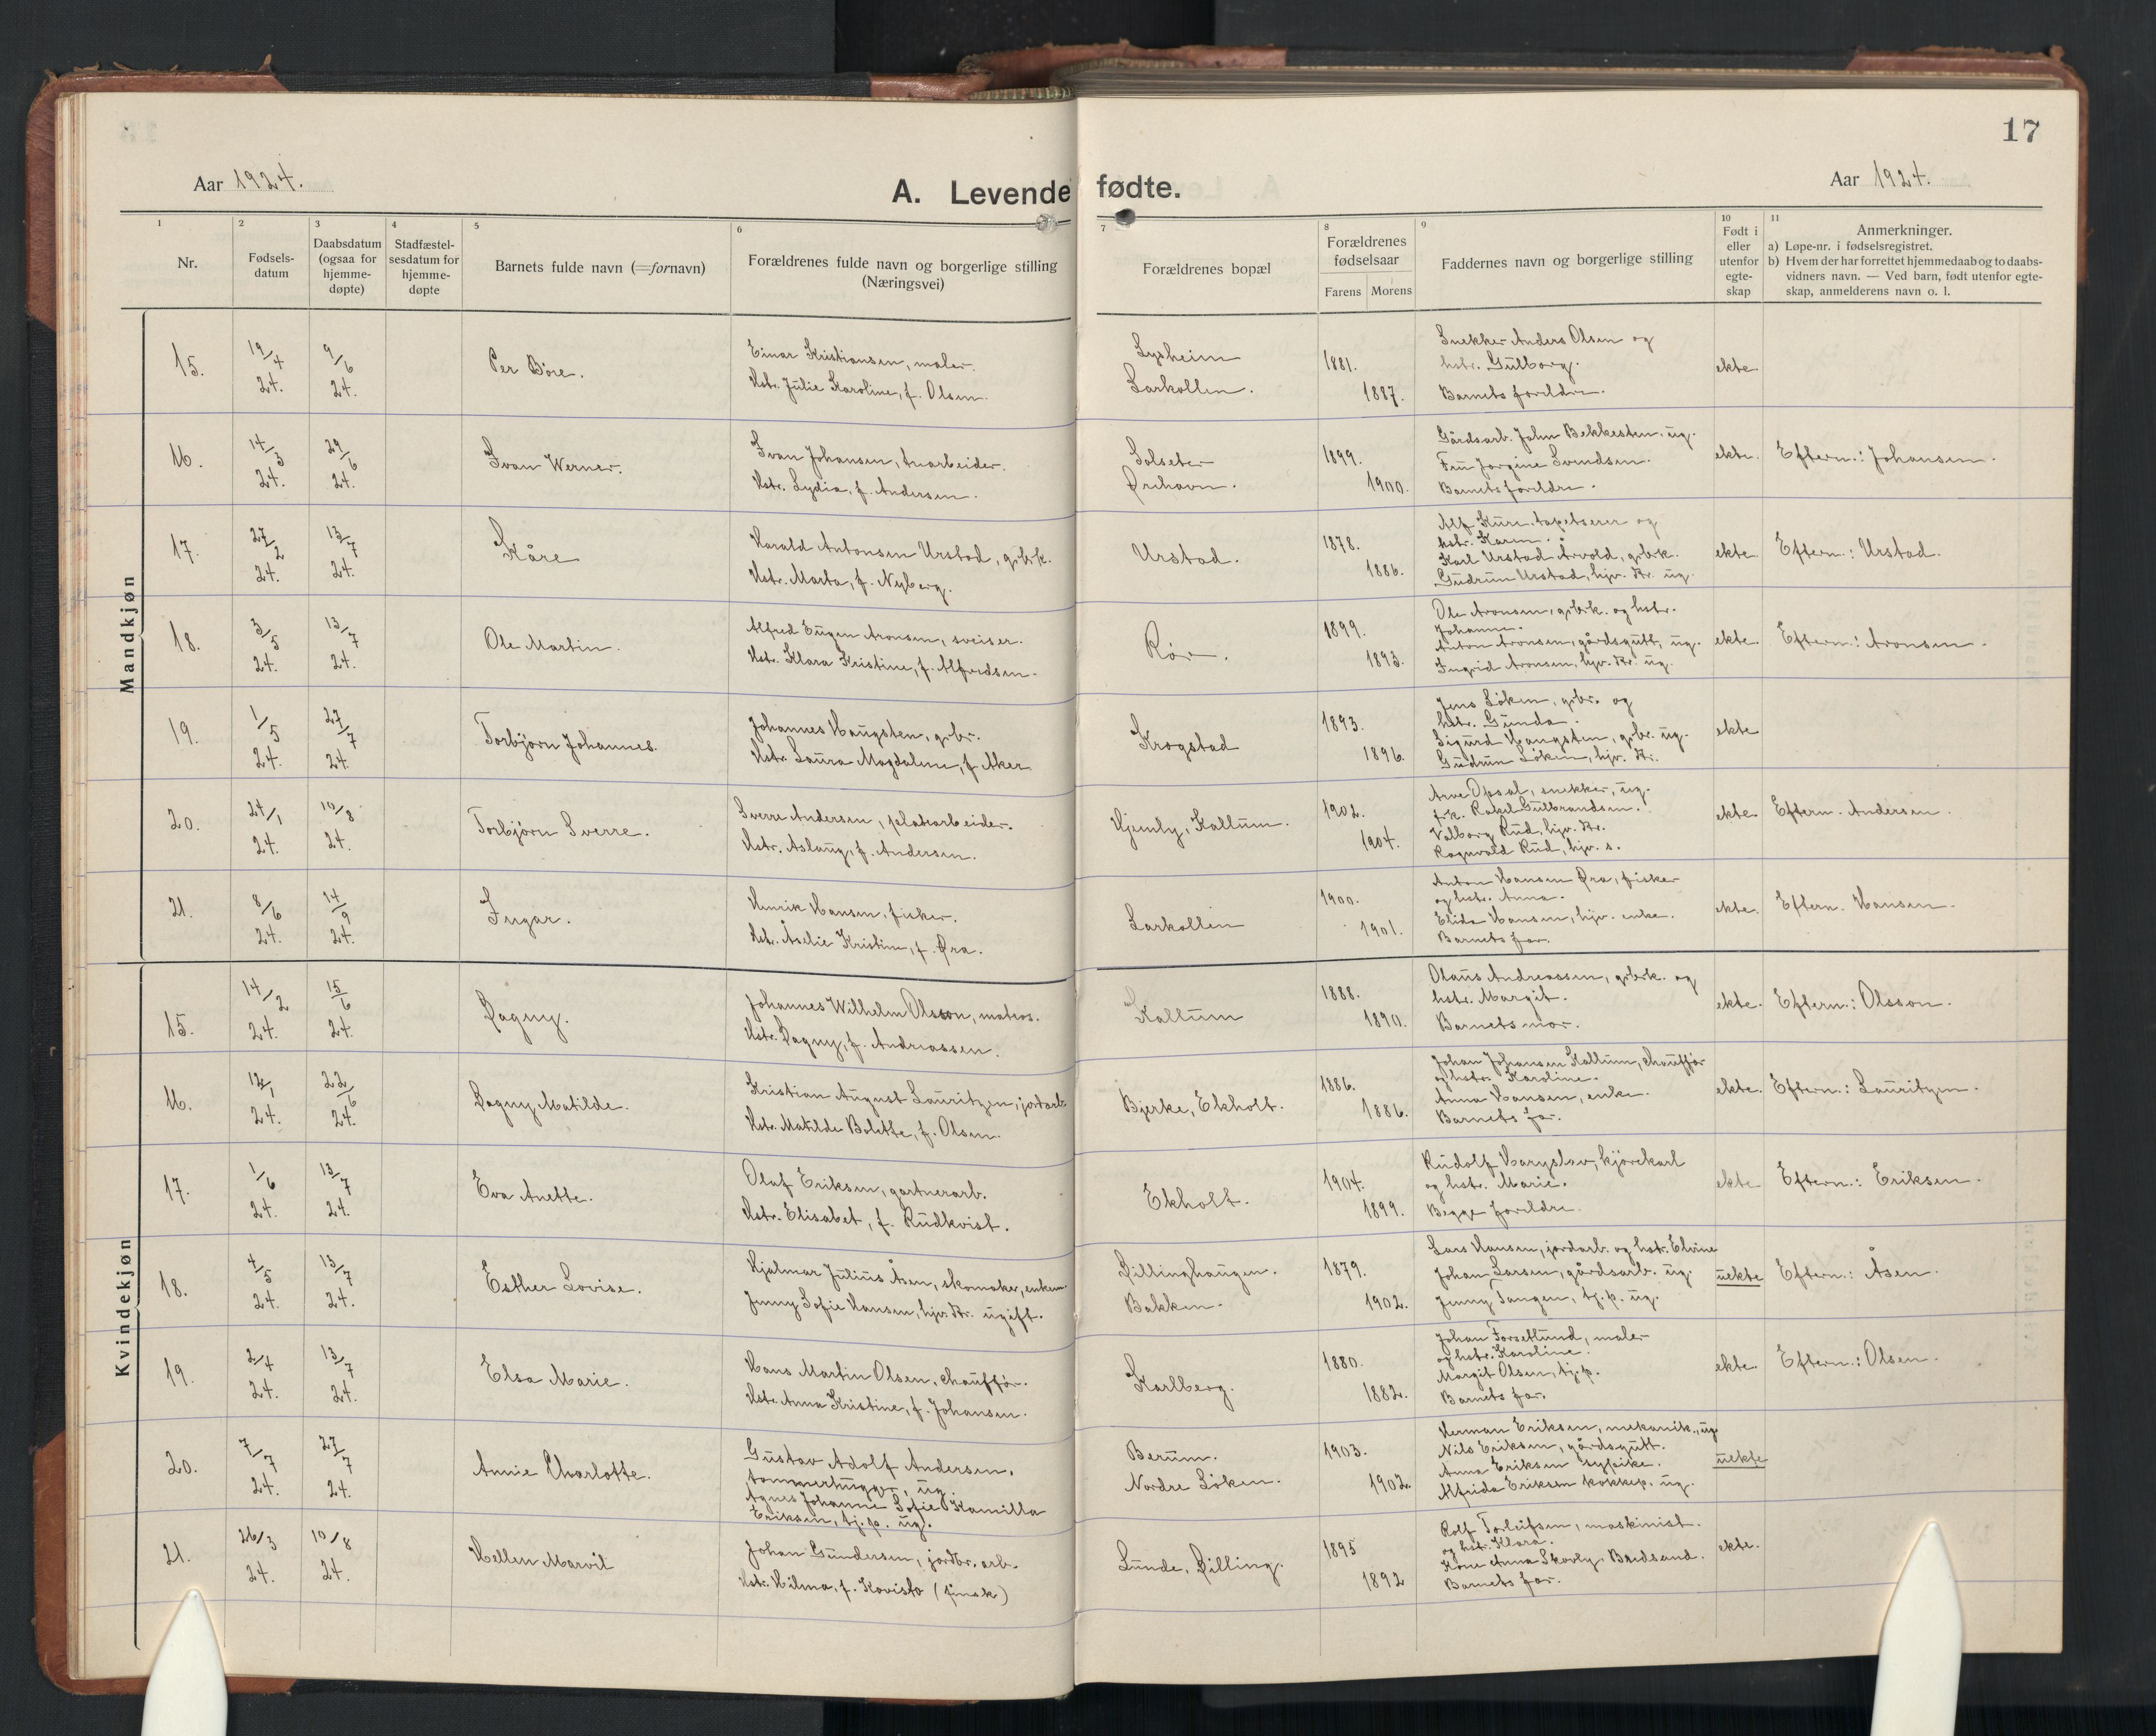 17
Aar 1924.
A. Levende fødte.
Aar 1924.
1
2
3
4
5
6
7
8
9
10
11
Nr.
Fødsels-
datum
Daabsdatum
(ogsaa for
hjemme-
døpte)
Stadfæstel-
sesdatum for
hjemme-
døpte
Barnets fulde navn (=fornavn)
Forældrenes fulde navn og borgerlige stilling
(Næringsvei)
Forældrenes bopæl
Forældrenes
fødselsaar
Farens Morens
Faddernes navn og borgerlige stilling
Født i
eller
utenfor
egte-
skap
Anmerkninger.
a) Løpe-nr. i fødselsregistret.
b) Hvem der har forrettet hjemmedaab og to daabs-
vidners navn. — Ved barn, født utenfor egte-
skap, anmelderens navn o. l.
Mandkjøn
15.
19/4
24.
9/6
24.
Per Bore.
Einar Kristiansen, maler.
Hstr. Julie Karoline, f. Olsen.
Lysheim
Larkollen.
1881.
1887.
Snekker Anders Olsen og
hstr. Gulborg.
Barnets foreldre.
ekte.
16.
14/3
24.
29/6
24.
Ivan Werner.
Ivan Johansen, arbeider.
Hstr. Lydia, f. Andersen.
Solseter
Ørehavn.
1899.
1900.
Gårdsarb. John Bekkesten, ug.
Fru Jorgine Svendsen.
Barnets foreldre.
ekte.
Eftern.: Johansen.
17.
27/2
24.
13/7
24.
Kåre
Harald Antonsen Urstad, grbrk.
Hstr. Marta, f. Nyberg.
Urstad.
1878.
1886.
Alf Kure, tapetserer og
hstr. Karen.
Karl Urstad Årvold, grbrk.
Gudrun Urstad, hjv. dtr. ug.
ekte.
Eftern.: Urstad.
18.
3/5
24.
13/7
24.
Ole Martin.
Alfred Eugen Aronsen, sveiser.
Hstr. Klara Kristine, f. Alfredsen.
Rör.
1899.
1893.
Ole Aronsen, grbrk. og hstr.
Johanne.
Anton Aronsen, gårdsgutt, ug.
Ingrid Aronsen, hjv. dtr. ug.
ekte.
Eftern.: Aronsen.
19.
1/5
24.
27/7
24.
Torbjörn Johannes.
Johannes Haugsten, grbr.
Hstr. Laura Magdalene, f. Aker
Krogstad
1893.
1896.
Jens Löken, grbr. og
hstr. Gunda.
Sigurd Haugsten, grbr. ug.
Gudrun Löken, hjv. dtr.
ekte
20.
24/1
24.
10/8
24.
Torbjörn Sverre.
Sverre Andersen, platearbeider.
Hstr. Aslaug, f. Andersen.
Hjemly, Kallum.
1902.
1904.
Arve Opsal, snekker, ug.
frk. Rakel Gulbrandsen.
Valborg Rud, hjv. dtr.
Ragnvald Rud, hjv. s.
ekte.
Eftern. Andersen.
21.
8/6
24.
14/9
24.
Ingar.
Henrik Hansen, fisker.
Hstr. Åselie Kristine, f. Øra.
Larkollen
1900.
1901.
Anton Hansen Øra, fisker
og hstr. Anna.
Elida Hansen, hjv. enke.
Barnets far.
ekte.
Eftern. Hansen.
Kvindekjøn
15.
14/2
24.
15/6
24.
Dagny.
Johannes Wilhelm Olsson, matros.
Hstr. Dagny, f. Andreassen.
Kallum
1888.
1890.
Olaus Andreassen, grbrk. og
hstr. Margit.
Barnets mor.
ekte.
Eftern.: Olsson.
16.
12/1
24.
22/6
24.
Dagny Matilde.
Kristian August Lauritzen, jordarb.
Hstr. Matilde Bolette, f. Olsen.
Bjerke, Ekholt.
1886.
1886.
Johan Johansen Kallum, chauffør
og hstr. Karoline.
Anna Hansen, enke.
Barnets far.
ekte.
Eftern.: Lauritzen.
17.
1/6
24.
13/7
24.
Eva Anette.
Olaf Eriksen, gartnerarb.
Hstr. Elisabet, f. Rudkvist.
Ekholt.
1904.
1899.
Rudolf Haryslov, kjörekarl
og hstr. Marie.
Begge foreldre.
ekte
Eftern.: Eriksen.
18.
4/5
24.
13/7
24.
Esther Lovise.
Hjalmar Julius Åsen, skomaker, enkem.
Jenny Sofie Hansen, hjv. dtr. ugift.
Dillinghaugen.
Bakken.
1879.
1902.
Lars Hansen, jordarb. og hstr. Elvine
Johan Larsen, gårdsarb. ug.
Jenny Tangen, tj. p. ug.
uekte
Eftern.: Åsen.
19.
2/4
24.
13/7
24.
Elsa Marie.
Hans Martin Olsen, chauffør.
Hstr. Anna Kristine, f. Johansen.
Karlberg.
1880.
1882.
Johan Forsetlund, maler
og hstr. Karoline.
Margit Olsen, tj. p.
Barnets far.
ekte.
Eftern.: Olsen.
20.
7/7
24.
27/7
24.
Annie Charlotte.
Gustav Adolf Andersen,
tømmerhugger, ug.
Agnes Johanne Sofie Kamilla
Eriksen, tj. p. ug.
Berum.
Nordre Löken.
1903.
1902.
Herman Eriksen, mekanik., ug.
Nils Eriksen, gårdsgutt.
Anna Eriksen sypike.
Alfrida Eriksen kokkep. ug.
uekte
21.
26/3
24.
10/8
24.
Hellen Marvil
Johan Gundersen, jordbr. arb.
Hstr. Hilma, f. Kovisto (finsk)
Lunde, Dilling.
1895
1892
Rolf Torleifsen, maskinist.
og hstr. Klara.
Kone Anna Skovly, Bredsand.
Barnets far.
ekte.